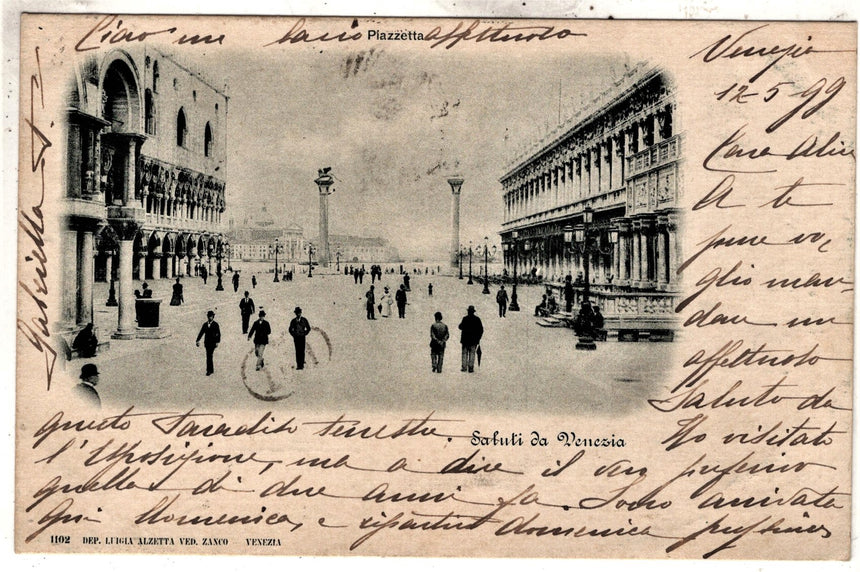 Ciao un bacio affettuoso
Piazzetta
Venezia
12-5 99
Cara Alice
A te
pure vo,
glio man,
dare un
affettuoso
Saluto da
questo Paradiso terrestre.
Saluti da Venezia
Ho visitato
l'Esposizione, ma a dire il vero preferivo
quella di due anni fa. Sono arrivata
qui Domenica, e ripartirò domenica
1102 DEP. LUIGIA ALZETTA VED. ZANCO VENEZIA
Gabriella